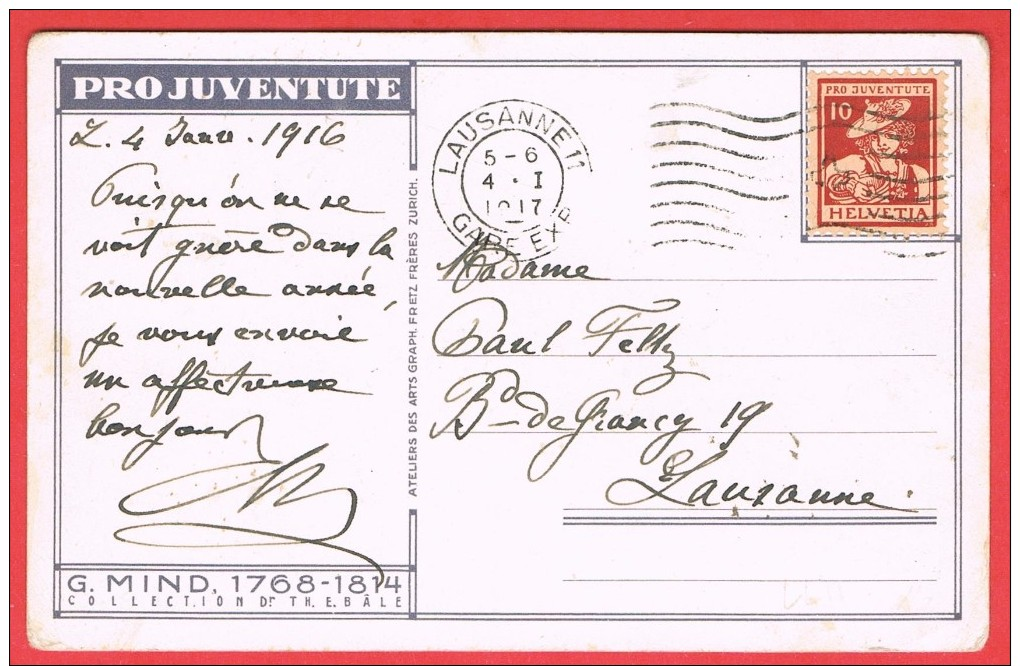 PRO JUVENTUTE
L. 4 Janv. 1916
Puisqu'on ne se
voit guère dans la
nouvelle année,
je vous envoie
un affectueuse
bonjour
G. MIND, 1768-1814
COLLECTION Dr TH. E. BÂLE
ATELIERS DES ARTS GRAPH. FRETZ FRÈRES ZURICH.
LAUSANNE 11
5-6
4 · I
1917
GARE EXP
PRO JUVENTUTE
10
HELVETIA
Madame
Paul
Bd de Grancy 19
Lausanne.